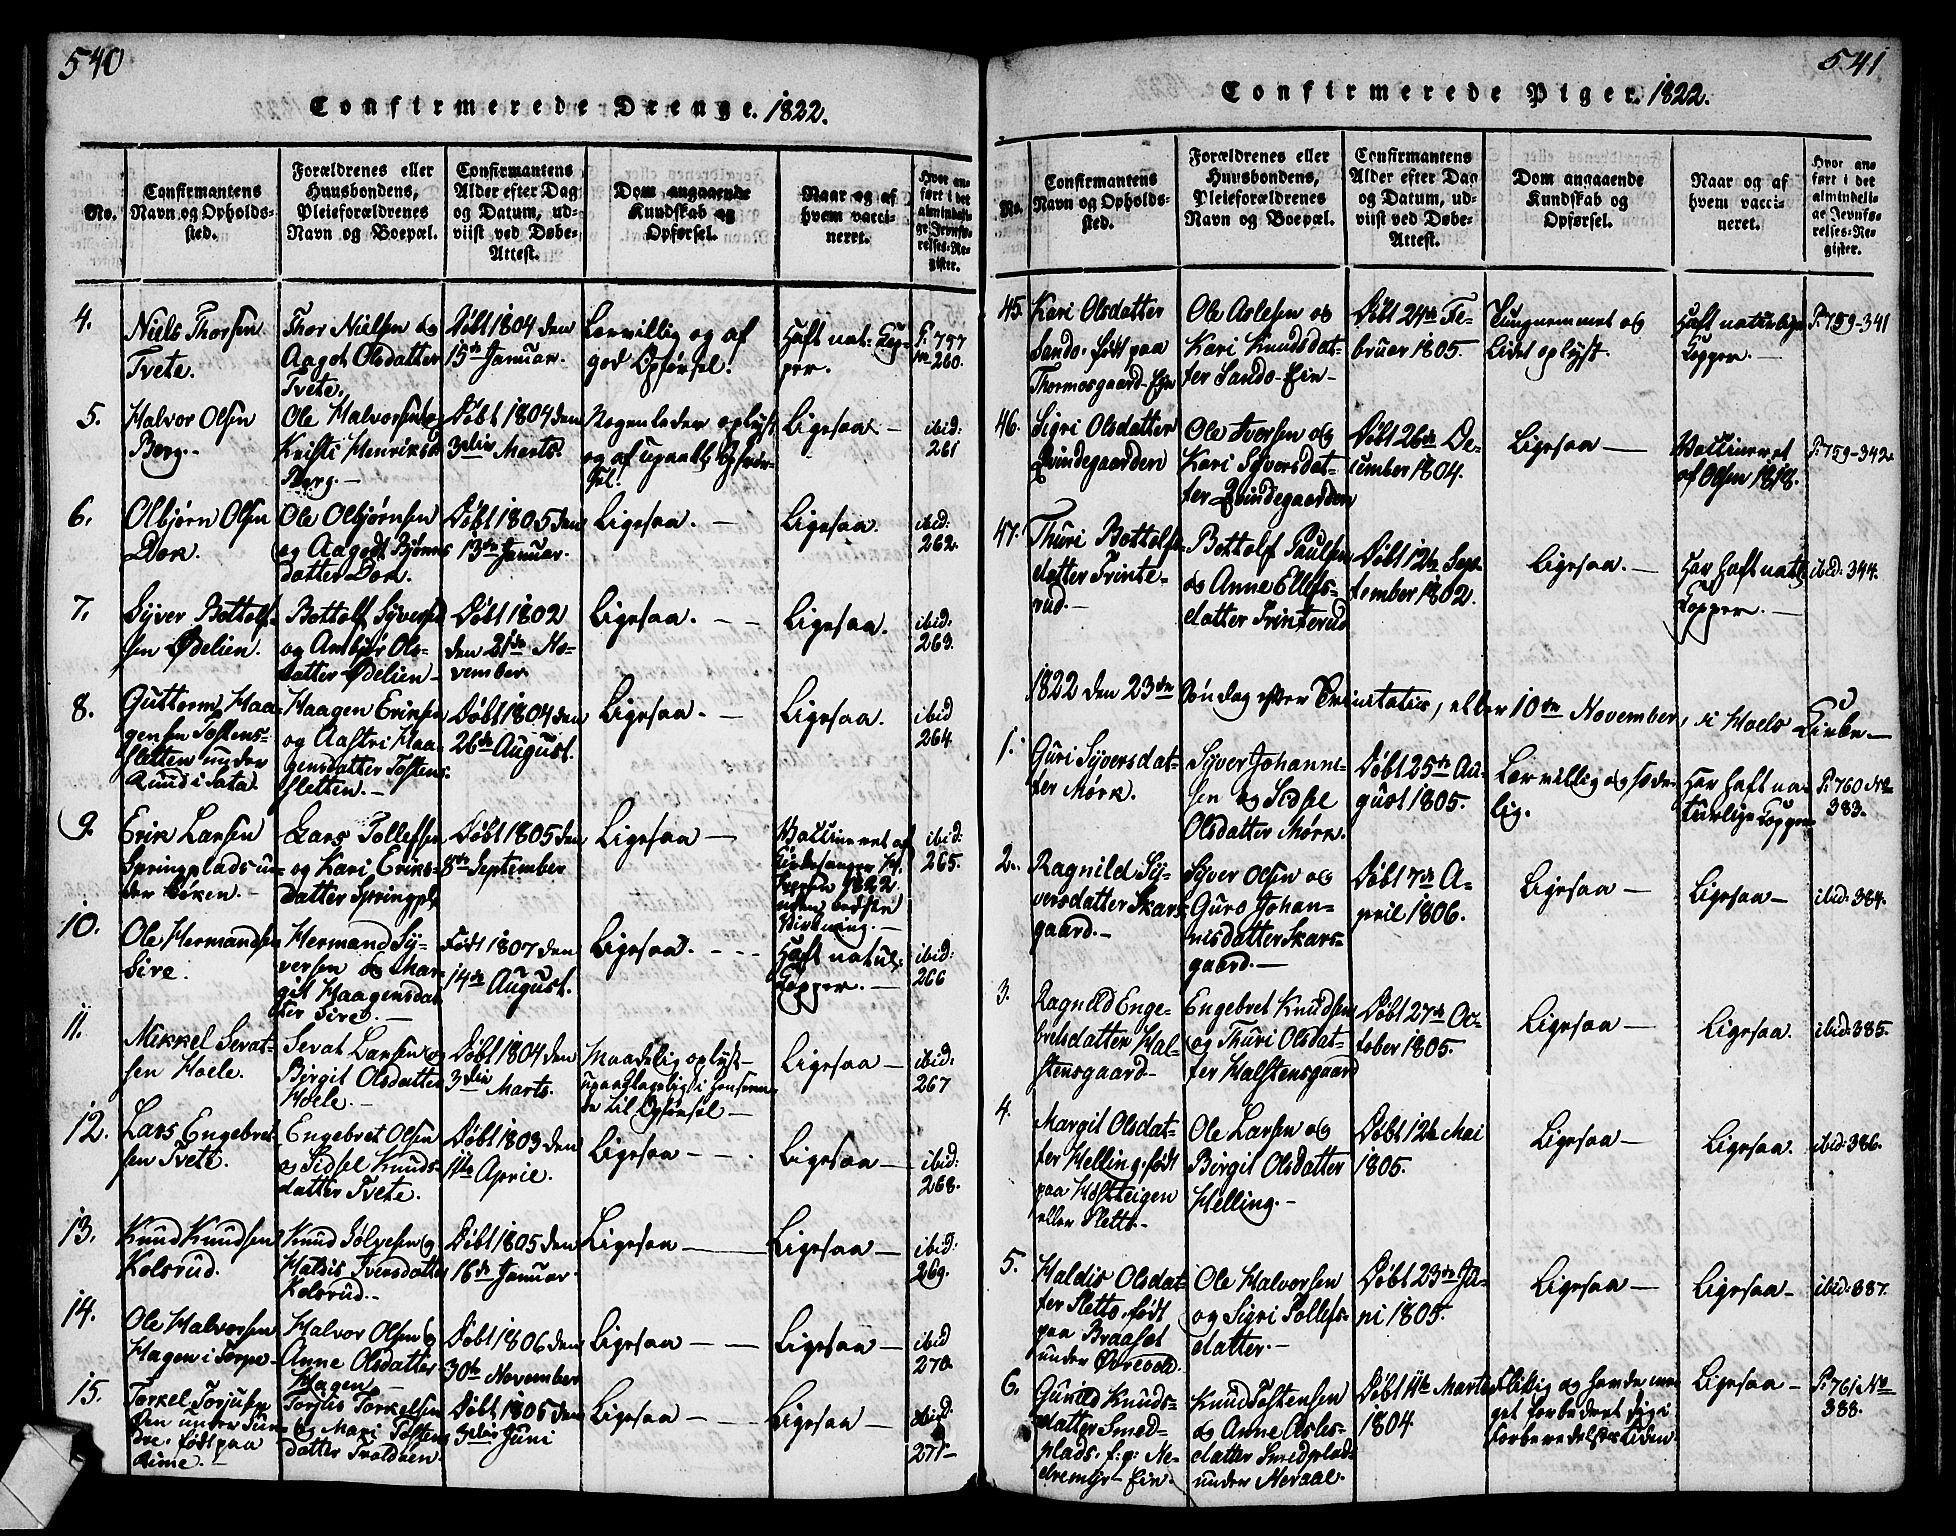 540
Confirmerede Drenge. 1822.
No.
Confirmantens
Navn og Opholds-
sted.
Forældrenes eller
Huusbondens,
Pleieforældrenes
Navn og Boepæl.
Confirmantens
Alder efter Dag
og Datum, ud-
viist ved Døbe-
Attest.
Dom angaaende
Kundskab og
Opførsel.
Naar og af
hvem vacci-
neret.
Hvor an-
ført i det
almindeli-
ge Jevnfø-
relses-Re-
gister.
4.
Niels Thorsen
Tvete.
Thor Nielsen og
Aagot Olsdatter
Tvete.
Døbt 1804 den
15de Januar.
Lærvillig og af
god Opførsel.
Haft nat: Kop-
per.
P: 757
No 260.
5.
Halvor Olsen
Berg.-
Ole Halvorsen og
Kristi Henriksd
Berg.-
Døbt 1804 den
3die Marts.
Nogenledes oplyst
og af upaakl: Opfør-
sel.
Ligesaa.-
ibid:
261
6.
Olbjørn Olsen
Dok.
Ole Olbjørnsen
og Aagodt Bjørns
datter Dok.
Døbt 1805 den
13de Januar.
Ligesaa.-
Ligesaa.
ibid:
262.
7.
Syver Bottolf-
sen Ødelien.
Bottolf Syversen
og Ambjør Ols-
datter Ødelien-
Døbt 1802
den 21de No-
vember
Ligesaa.--
Ligesaa.
ibid:
263.
8.
Guttorm Haa-
gensen Tostens-
sletten under
Ruud i Sata.
Haagen Eriksen
og Aastri Haa-
gensdatter Tostens-
sletten.-
Døbt 1804 den
26de August.
Ligesaa.-
Ligesaa.
ibid
264
9.
Erik Larsen
Springplads un-
der Bøken.-
Lars Tollefsen
og Kari Eriks-
datter Springpl:
Døbt 1805 den
8de September
Ligesaa-
Vaccineret af
1822
uden
Virkning.-
ibid:
265.
10.
Ole Hermandsen
Sire.
Hermand Sy-
versen og Mar-
git Haagensdat
ter Sire.-
Født 1807 den
14de August.
Ligesaa.---
Haft natul:
Kopper.-
ibid:
266
11.
Mikkel Sevat-
sen Hoele.
Sevat Larsen og
Birgit Olsdatter
Hoele.-
Døbt 1804 den
3die Marts.
Maadelig oplyst-
upaaklagelig i Henseen-
de til Opførsel-
Ligesaa-
ibid:
267
12.
Lars Engebret-
sen Tvete.
Engebret Olsen
og Sidsel Knuds-
datter Tvete.
Døbt 1803 den
11te April.
Ligesaa--.
Ligesaa-
ibid:
268.
13.
Knud Knudsen
Kolsrud.
Knud Sølvesen og
Haldis Iversdatter
Kolsrud.-
Døbt 1805 den
16de Januar.
Ligesaa-
Ligesaa-
ibid:
269.
14.
Ole Halvorsen
Hagen i Torpe-
Halvor Olsen og
Anne Olsdatter
Hagen-
Døbt 1806 den
30te November
Ligesaa--
Ligesaa-
ibid
270.
15.
Torkel Torjus-
sen under Sun-
dre. født paa
Rime.-
Torjus Torkelsen
og Mari Tosten
datter Trøldøen
Døbt 1805 den
3die Juni
Ligesaa--
Ligesaa-
ibid:
271-
541
Confirmerede Piger. 1822.
No.
Confirmantens
Navn og Opholds-
sted.
Forældrenes eller
Huusbondens,
Pleieforældrenes
Navn og Boepæl.
Confirmantens
Alder efter Dag
og Datum, ud-
viist ved Døbe-
Attest.
Dom angaaende
Kundskab og
Opførsel.
Naar og af
hvem vacci-
neret.
Hvor an-
ført i det
almindeli-
ge Jevnfø-
relses-Re-
gister.
45.
Kari Olsdatter
Sando. født paa
Thormosgaard-Ejn
Ole Aslesen og
Kari Knudsdat-
ter Sando-Ein-
Døbt 24de Fe-
bruar 1805.
Tungnemmet og
lidet oplyst.
Haft naturlige
Kopper.-
P: 759-341
46.
Sigri Olsdatter
Qvindegaarden
Ole Iversen og
Kari Syversdat-
ter Qvindegaarden
Døbt 26de De-
cember 1804.
Ligesaa-
Vaccineret
af Olsen 1818.
P: 759-342.
47.
Thuri Bottolfs-
datter Trinte-
rud.-
Bottolf Paulsen
og Anne Ellefs-
datter Trinterud
Døbt 12te Sep-
tember 1802.
Ligesaa.-
Har haft natl:
Kopper.-
ibid: 344.
1822 den 23de Søndag efter Trinitatis, eller 10de November, i Hoels Kirke.-
1.
Guri Syversdat-
ter Mørk.
Syver Johanne-
sen og Sidsel
Olsdatter Mørk.
Døbt 25de Au-
gust 1805.
Lærvillig og sæde-
lig.
Har haft na-
turlige Kopper
P: 760 No
383.
2.
Ragnild Sy-
versdatter Skars-
gaard.-
Syver Olsen og
Guro Johan-
nisdatter Skars-
gaard.-
Døbt 7de A-
pril 1806.
Ligesaa-
Ligesaa-
ibid: 384.
3.
Ragnild Enge-
bretsdatter Hal-
stensgaard-
Engebret Knudsen
og Thuri Olsdat-
ter Halstensgaard
Døbt 27de Oc-
tober 1805.
Ligesaa-
Ligesaa.
ibid: 385.
4.
Margit Olsdat-
ter Helling. født
paa Hofsteigen
eller Sletto-
Ole Larsen og
Birgit Olsdatter
Helling.-
Døbt 12te Mai
1805.
Ligesaa-
Ligesaa.
ibid: 386.
5.
Haldis Olsdat-
ter Sletto. født
paa Braaset
under Øvrevol.
Ole Halvorsen
og Sigri Tollefs-
datter.-
Døbt 23de Ju-
ni 1805.
Ligesaa-
Ligesaa-
ibid: 387.
6.
Gunild Knuds-
datter Smed-
plads. f: p: Ne-
dremyr- Ein-
Knud Tostensen
og Anne Asles-
datter Smedplads
under Neraal.
Døbt 11te Marts
1804
Flittig og havde me-
get forbedret sig i
Forberedelsestiden.
Ligesaa-
P: 761 No
388.